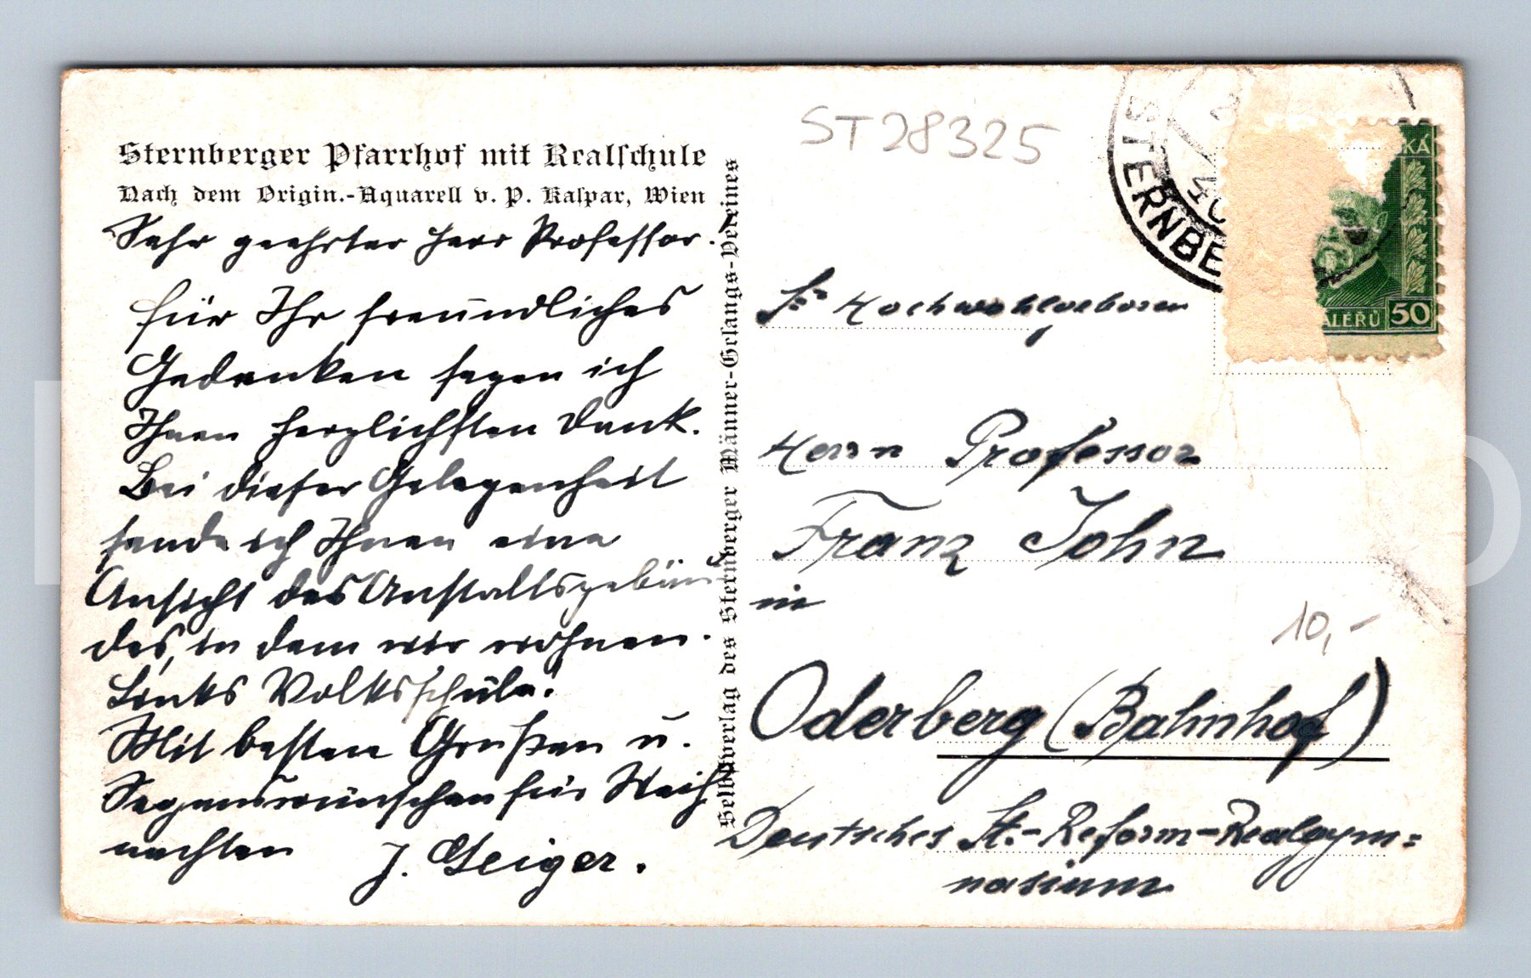 Sternberger Pfarrhof mit Realschule
Nach dem Origin.-Aquarell v. P. Kaspar, Wien
Sehr geehrter Herr Professor.
für Ihr freundliches
Gedenken sagen ich
Ihnen herzlichsten Dank.
Bei dieser Gelegenheit
sende ich Ihnen eine
Ansicht des Anstaltsgebäu
des, in dem wir wohnen.
Links Volksschule.
Mit besten Grüßen u.
Segenswünschen für Weih
nachten J. Geiger.
Selbstverlag des Sternberger Männer-Gesangs-Vereines
ST28325
STERNBE
KÁ
ALÉŘŮ 50
Sr Hochwohlgeboren
Herrn Professor
Franz John
in
10,-
Oderberg (Bahnhof)
Deutsches St.-Reform-Realgym=
nasium